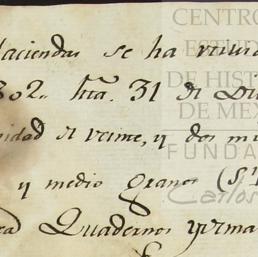 Haciendas se ha
802. hta. 31 de
nidad de veinte, y dos mil
y medio granos (S
Quadernos
CENTRO
ESTUDI
DE HIST
DE MÉX
FUNDA
Carlos